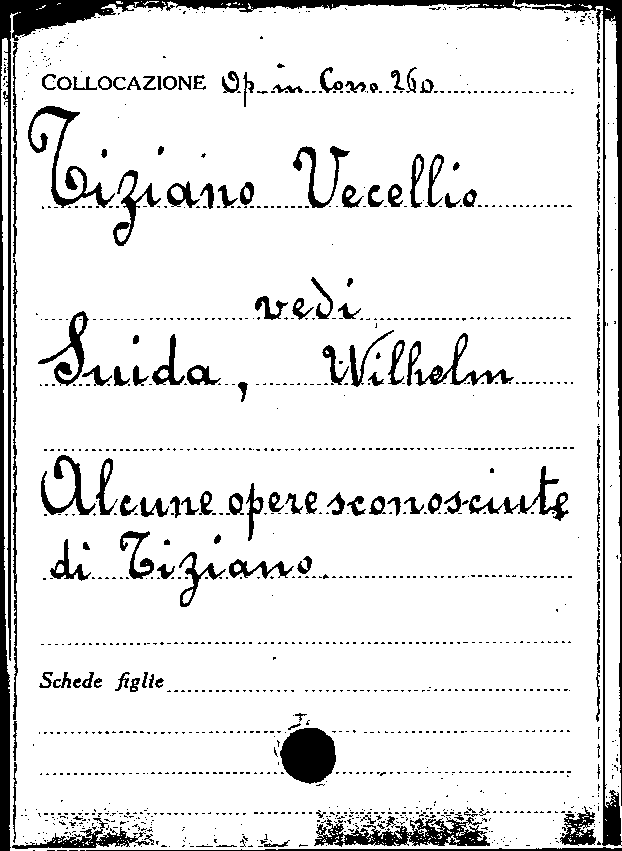 COLLOCAZIONE Op. in Corso 260
Tiziano Vecellio
vedi
Suida, Wilhelm
Alcune opere sconosciute
di Tiziano.
Schede figlie